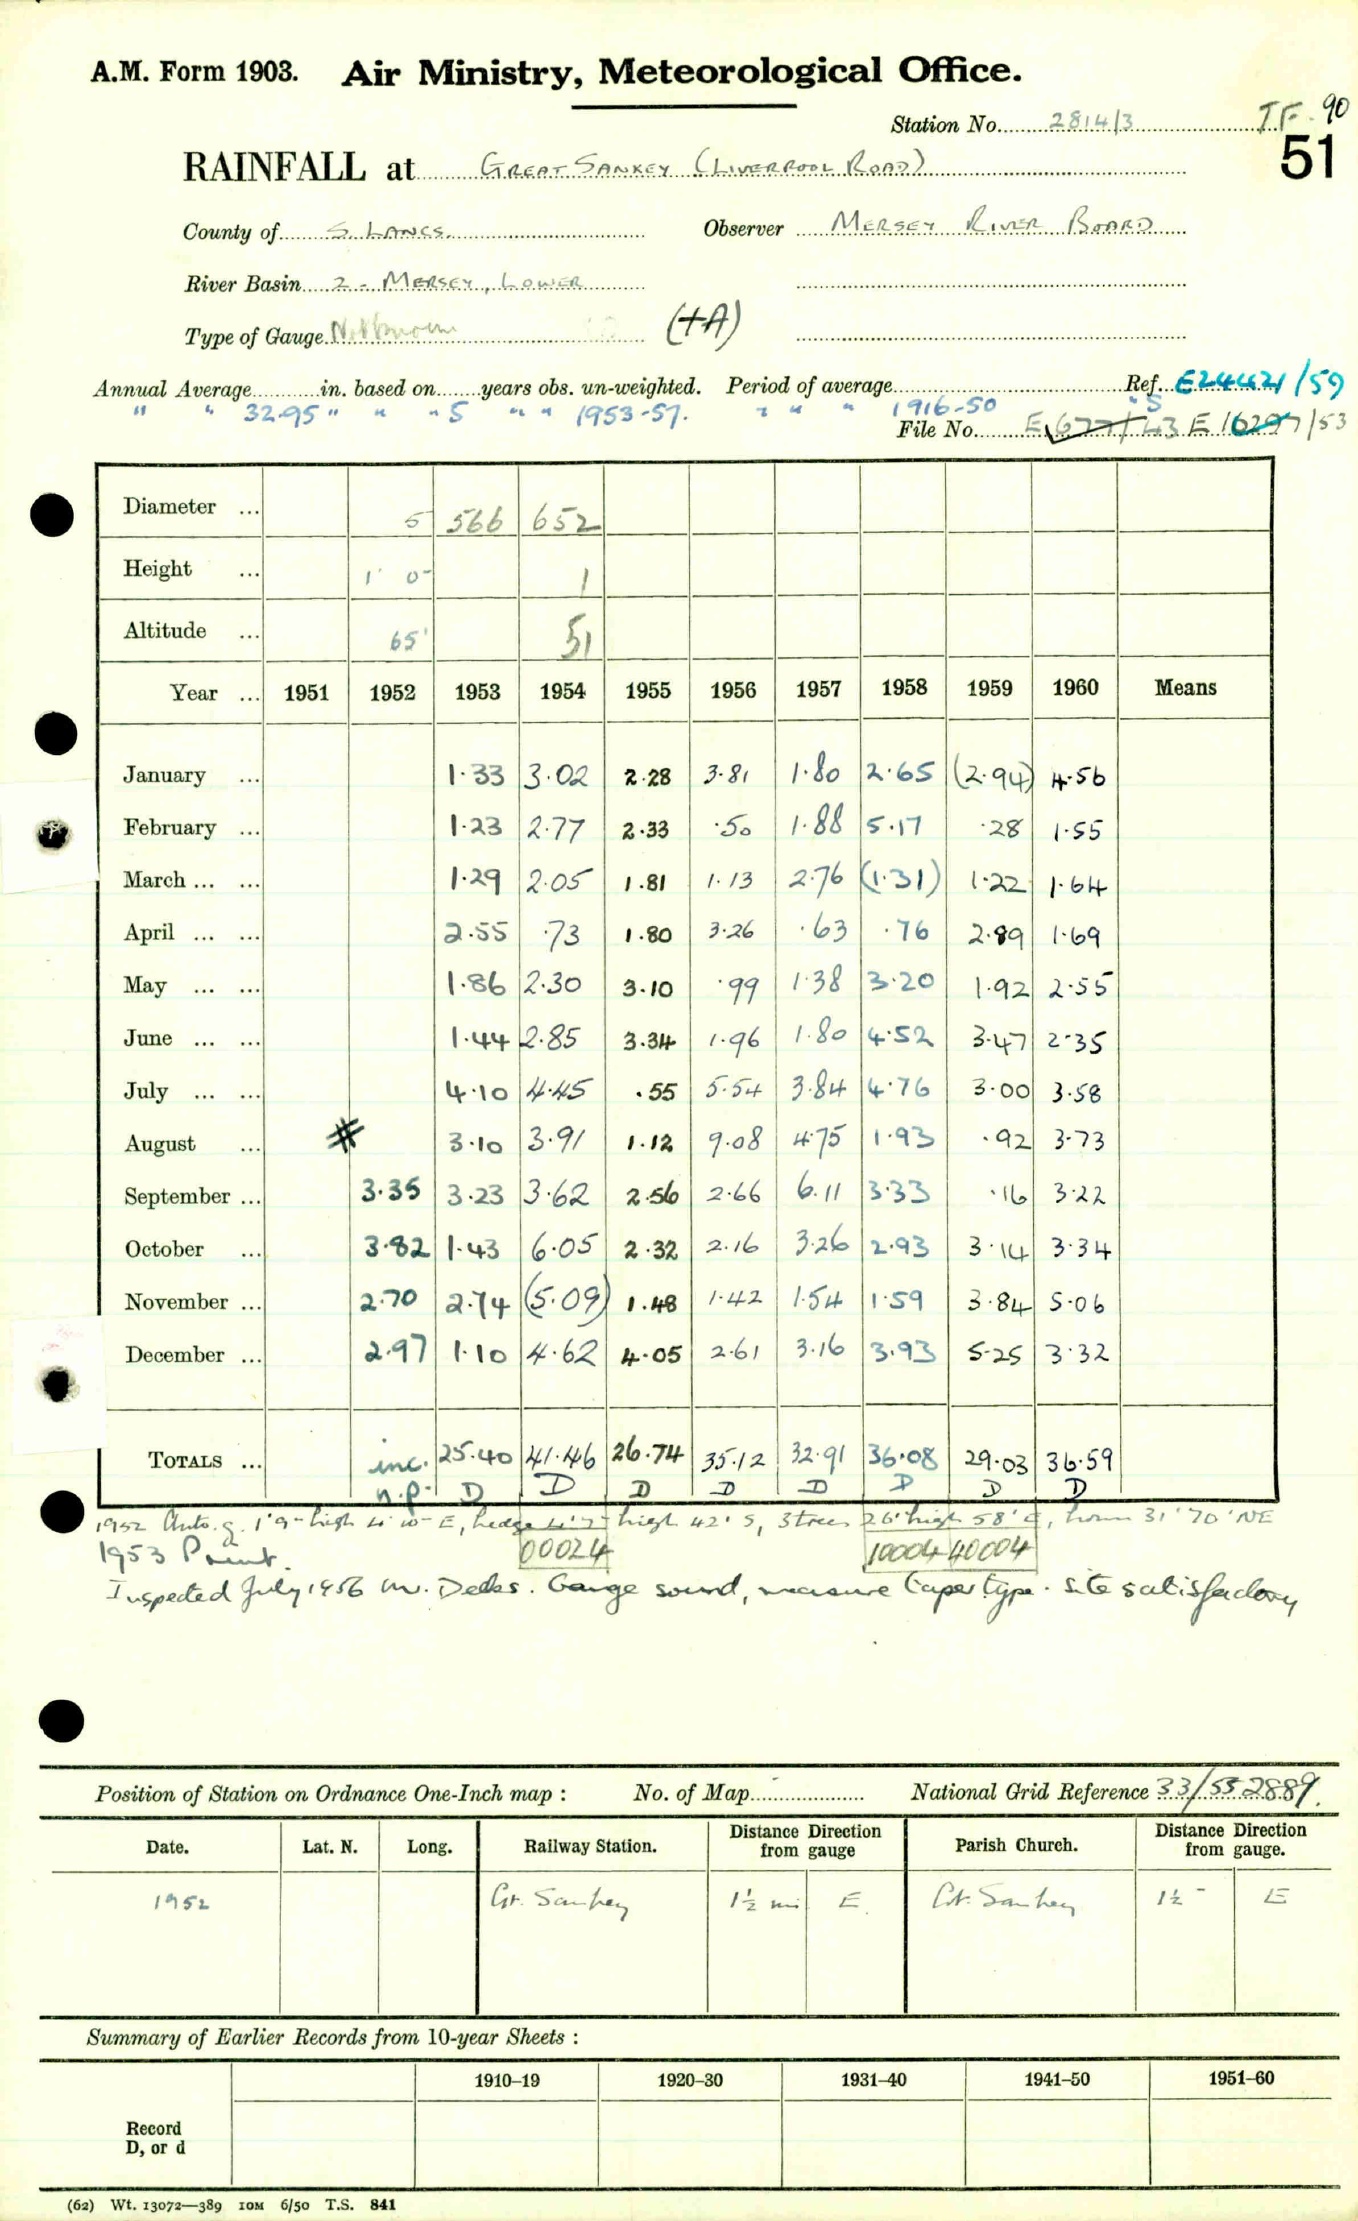 A.M. Form 1903. Air Ministry, Meteorological Office.
Station No. 2814/3
51
RAINFALL at GREAT SANKEY (LIVERPOOL ROAD)
County of S. LANCS. Observer MERSEY RIVER BOARD
River Basin 2 - MERSEY, LOWER
Type of Gauge (+A)
Annual Average in. based on years obs. un-weighted. Period of average Ref. E24421/59
" " 32.95 " " " 5 " " 1953-57. " " " 1916-50
File No.
Diameter ... 5 566 652
Height ... 1' 0" 1
Altitude ... 65' 51
Year ... 1951 1952 1953 1954 1955 1956 1957 1958 1959 1960 Means
January ... 1.33 3.02 2.28 3.81 1.80 2.65 (2.94) 4.56
February ... 1.23 2.77 2.33 .50 1.88 5.17 .28 1.55
March ... ... 1.29 2.05 1.81 1.13 2.76 (1.31) 1.22 1.64
April ... ... 2.55 .73 1.80 3.26 .63 .76 2.89 1.69
May ... ... 1.86 2.30 3.10 .99 1.38 3.20 1.92 2.55
June ... ... 1.44 2.85 3.34 1.96 1.80 4.52 3.47 2.35
July ... ... 4.10 4.45 .55 5.54 3.84 4.76 3.00 3.58
August ... # 3.10 3.91 1.12 9.08 4.75 1.93 .92 3.73
September ... 3.35 3.23 3.62 2.56 2.66 6.11 3.33 .16 3.22
October ... 3.82 1.43 6.05 2.32 2.16 3.26 2.93 3.14 3.34
November ... 2.70 2.74 (5.09) 1.48 1.42 1.54 1.59 3.84 5.06
December ... 2.97 1.10 4.62 4.05 2.61 3.16 3.93 5.25 3.32
TOTALS ... inc. 25.40 41.46 26.74 35.12 32.91 36.08 29.03 36.59
n.p. D D D D D D D D
1952 Auto. g. 1'9" high 4' 10" E, hedge 4'7" high 42' S, 3 trees 26' high 58' E, house 31' 70' NE
1953
00024 10004 40004
Inspected July 1956 Mr. Gauge sound, measure taper type. Site satisfactory
Position of Station on Ordnance One-Inch map : No. of Map National Grid Reference 33/552889.
Date. Lat. N. Long. Railway Station. Distance Direction from gauge Parish Church. Distance Direction from gauge.
1952 Gt. Sankey 1½ mi E. Gt. Sankey 1½ " E
Summary of Earlier Records from 10-year Sheets :
1910–19 1920–30 1931–40 1941–50 1951–60
Record
D, or d
(62) Wt. 13072—389 10M 6/50 T.S. 841